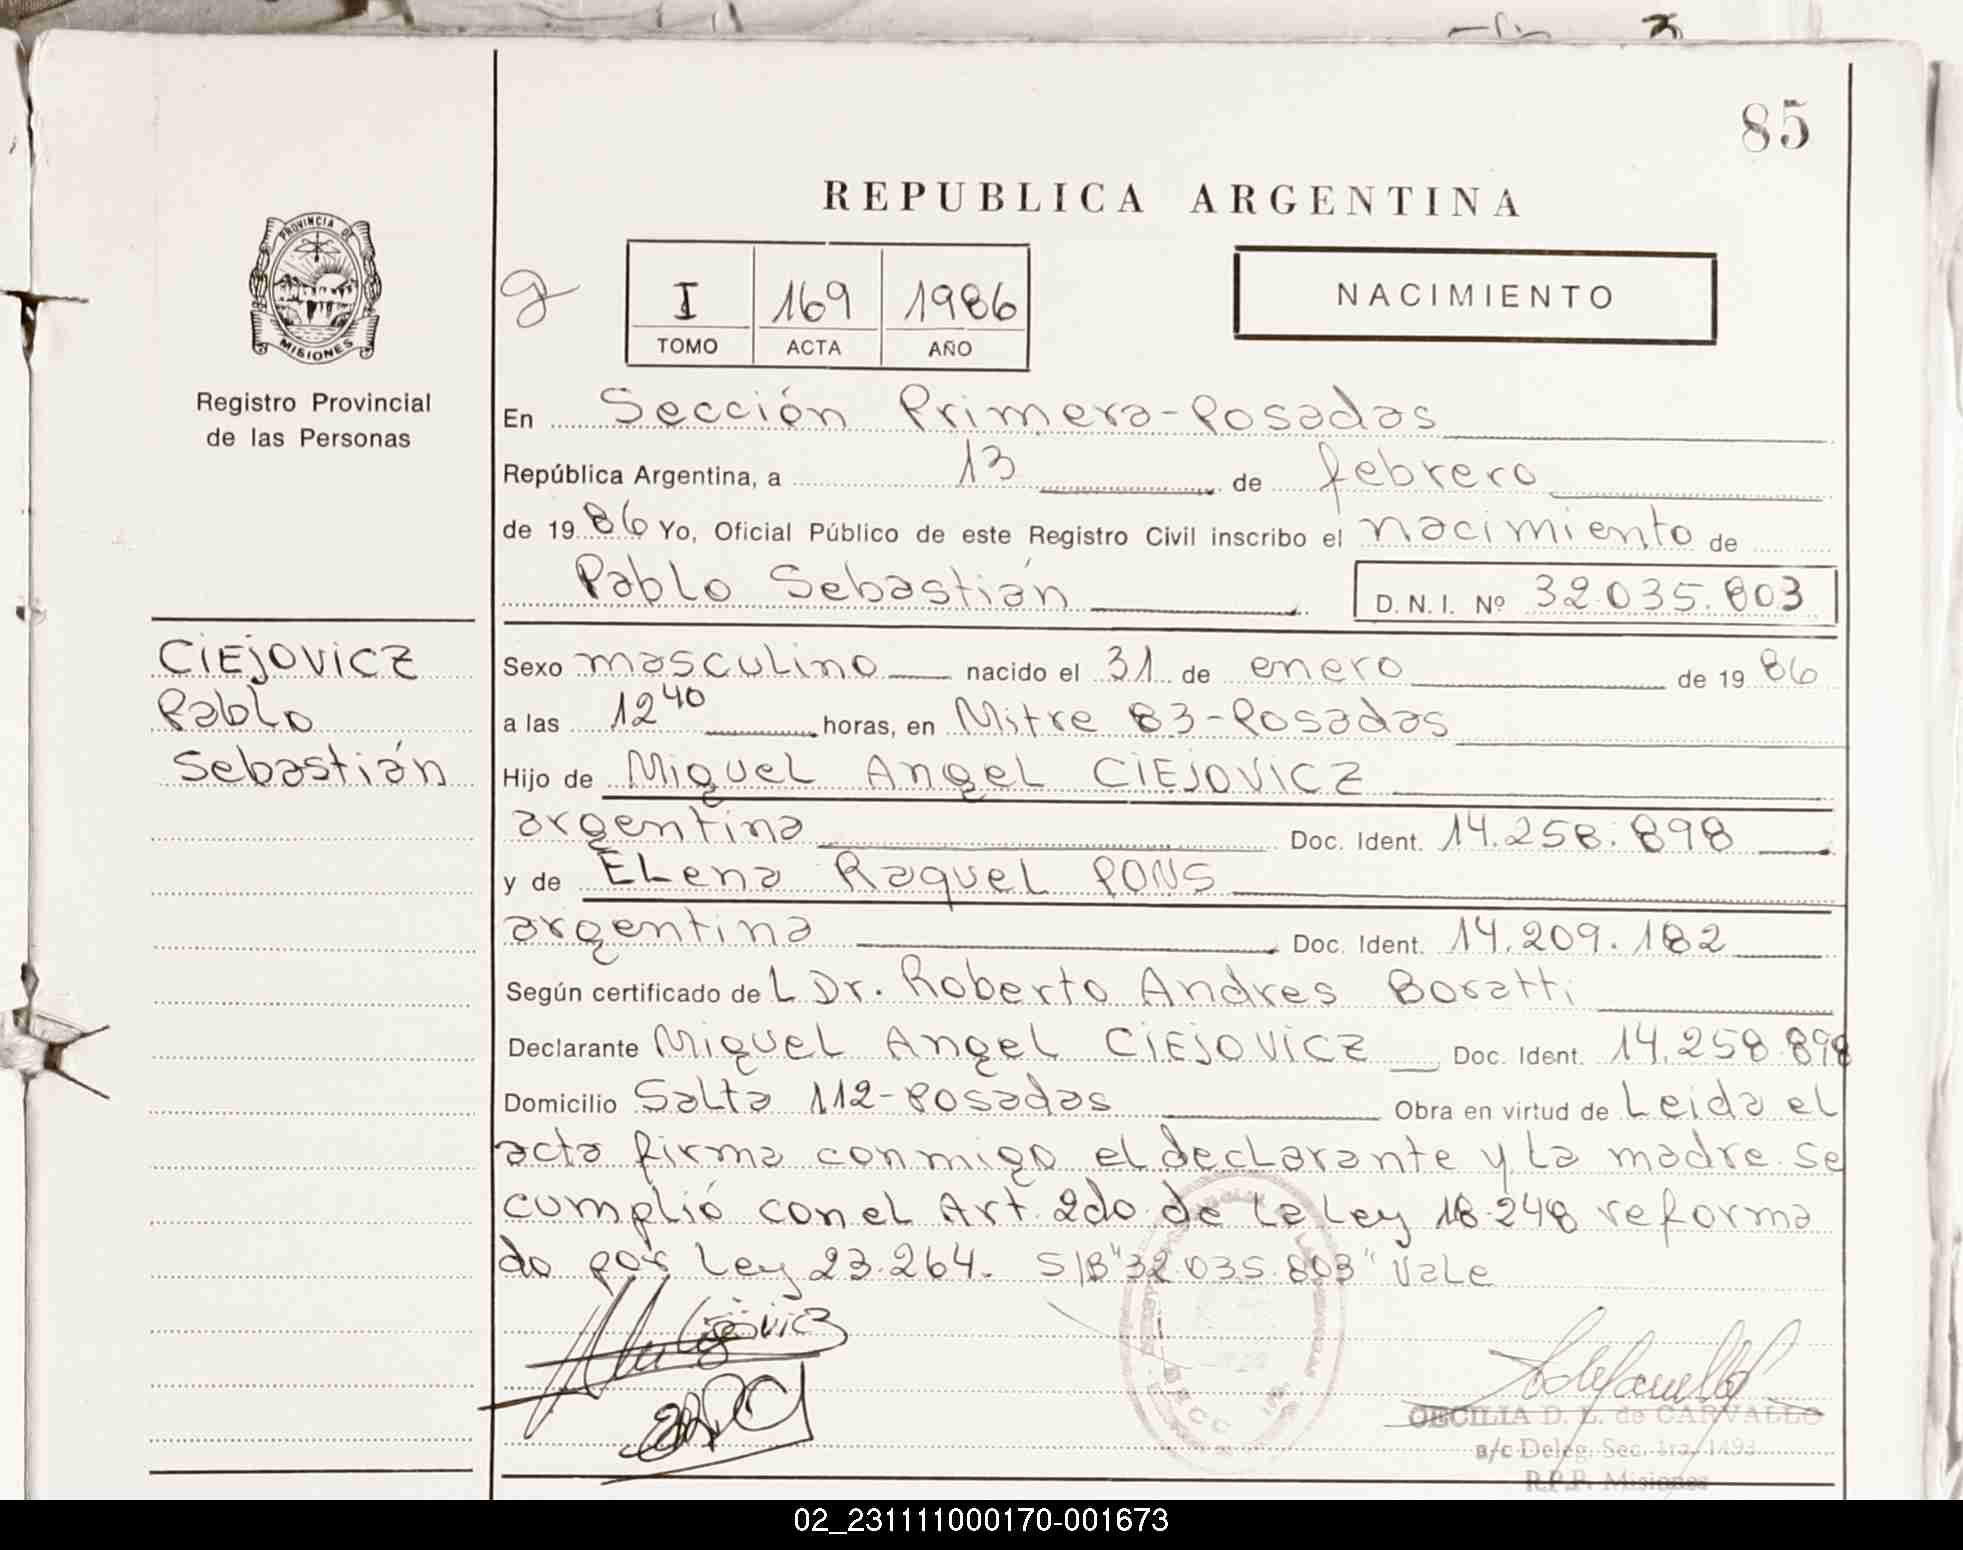 85
REPUBLICA ARGENTINA
PROVINCIA DE
MISIONES
Registro Provincial
de las Personas
I 169 1986
TOMO ACTA AÑO
NACIMIENTO
En Sección Primera-Posadas
República Argentina, a 13 de febrero
de 1986 Yo, Oficial Público de este Registro Civil inscribo el nacimiento de
Pablo Sebastián D.N.I. Nº 32.035.803
CIEJOVICZ
Pablo
Sebastián
Sexo masculino nacido el 31 de enero de 1986
a las 12 40 horas, en Mitre 83-Posadas
Hijo de Miguel Angel CIEJOVICZ
argentina Doc. Ident. 14.258.898
y de Elena Raquel PONS
argentina Doc. Ident. 14.209.182
Según certificado del Dr. Roberto Andres Boratti
Declarante Miguel Angel CIEJOVICZ Doc. Ident. 14.258.898
Domicilio Salta 112-Posadas Obra en virtud de Leida el
acta firma conmigo el declarante y la madre. se
cumplió con el Art. 2do. de la Ley 18.248 reforma
do por Ley 23.264. S/B "32.035.803" Vale
Ciejovicz
CECILIA D. L. de CARVALLO
a/c Deleg. Sec. 1ra. 1493
R.P.P. Misiones
02_231111000170-001673